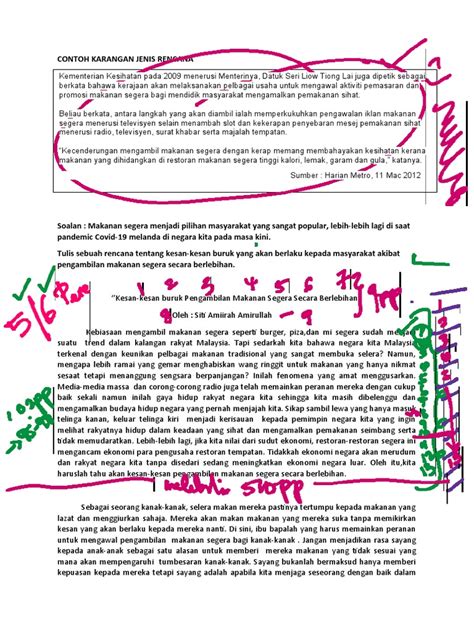 CONTOH KARANGAN JENIS RENCANA
Kementerian Kesihatan pada 2009 menerusi Menterinya, Datuk Seri Liow Tiong Lai juga dipetik sebagai
berkata bahawa kerajaan akan melaksanakan pelbagai usaha untuk mengawal aktiviti pemasaran dan
promosi makanan segera bagi mendidik masyarakat mengamalkan pemakanan sihat.
Beliau berkata, antara langkah yang akan diambil ialah memperkukuhkan pengawalan iklan makanan
segera menerusi televisyen selain menambah slot dan kekerapan penyebaran mesej pemakanan sihat
menerusi radio, televisyen, surat khabar serta majalah tempatan.
"Kecenderungan mengambil makanan segera dengan kerap memang membahayakan kesihatan kerana
makanan yang dihidangkan di restoran makanan segera tinggi kalori, lemak, garam dan gula," katanya.
Sumber : Harian Metro, 11 Mac 2012
Soalan : Makanan segera menjadi pilihan masyarakat yang sangat popular, lebih-lebih lagi di saat
pandemic Covid-19 melanda di negara kita pada masa kini.
Tulis sebuah rencana tentang kesan-kesan buruk yang akan berlaku kepada masyarakat akibat
pengambilan makanan segera secara berlebihan.
1 2 3 4 5 6 7
5/6
"Kesan-kesan buruk Pengambilan Makanan Segera Secara Berlebihan
8 Oleh : Siti Amiirah Amirullah 9
Kebiasaan mengambil makanan segera seperti burger, piza,dan mi segera sudah menjadi
suatu trend dalam kalangan rakyat Malaysia. Tapi sedarkah kita bahawa negara kita Malaysia
terkenal dengan keunikan pelbagai makanan tradisional yang sangat membuka selera? Namun,
mengapa lebih ramai yang gemar menghabiskan wang ringgit untuk makanan yang hanya nikmat
sesaat tetapi derita yang seterusnya berpanjangan? Inilah fenomena yang amat menggusarkan.
Media-media massa dan corong-corong radio juga telah memainkan peranan mereka dengan cukup
baik sekali namun inilah gaya hidup rakyat negara kita sehingga kita masih dibelenggu dan
mengamalkan budaya hidup negara yang pernah menjajah kita. Sikap sambil lewa yang hanya masuk
telinga kanan, keluar telinga kiri menjadi kerisauan kepada pemimpin negara kita yang ingin
melihat rakyatnya hidup dalam keadaan yang sihat dan mengamalkan pemakanan seimbang serta
tidak memudaratkan. Lebih-lebih lagi, jika kita nilai dari sudut ekonomi, restoran-restoran segera ini
mengancam ekonomi para pengusaha restoran tempatan. Tidakkah ekonomi negara akan merudum
dan rakyat negara kita tanpa disedari sedang meningkatkan ekonomi negara luar. Oleh itu,kita
haruslah tahu akan kesan-kesan pengambilan makanan segera secara berlebihan.
melebihi 50pp
Sebagai seorang kanak-kanak, selera makan mereka pastinya tertumpu kepada makanan yang
lazat dan menggiurkan sahaja. Mereka akan makan makanan yang mereka suka tanpa memikirkan
kesan yang akan berlaku kepada mereka nanti. Di sini, ibu bapalah yang harus memainkan peranan
untuk mengawal pengambilan makanan segera bagi kanak-kanak . Jangan menjadikan rasa sayang
kepada anak-anak sebagai satu alasan untuk memberi mereka makanan yang tidak sesuai yang
mana akan mempengaruhi tumbesaran kanak-kanak. Sayang bukanlah bermaksud hanya memberi
kepuasan kepada mereka tetapi sayang adalah apabila kita menjaga seseorang dengan baik dalam